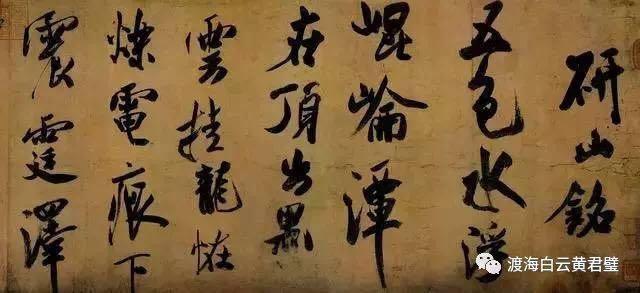 研山銘
五色水浮
崐崘潭
在頂出黑
雲挂龍恠
爍電痕下
震霆澤
渡海白云黄君璧